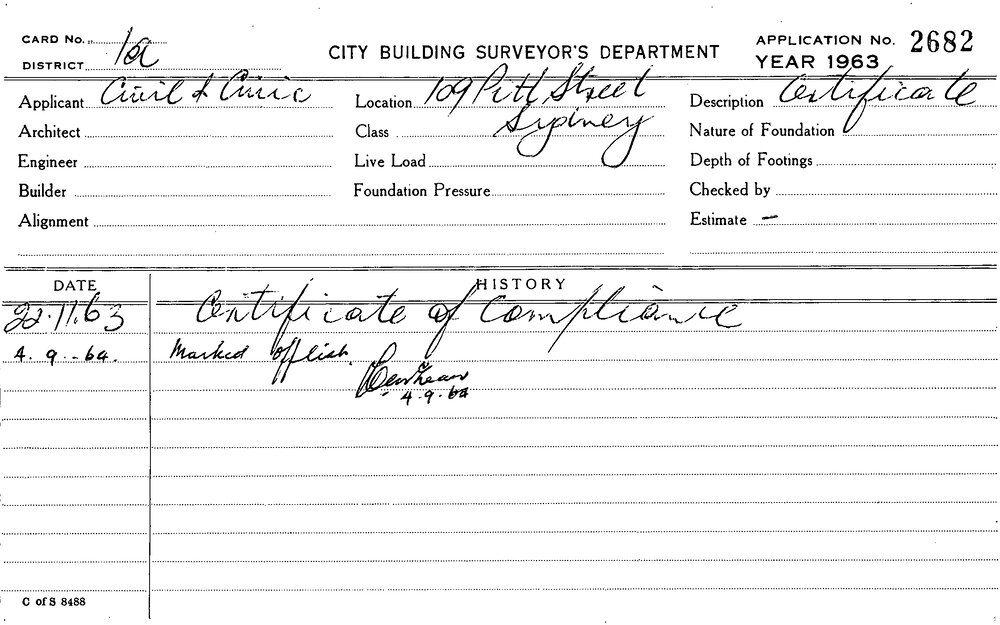 CARD No. 1a
CITY BUILDING SURVEYOR'S DEPARTMENT
APPLICATION No. 2682
DISTRICT
YEAR 1963
Applicant Civil & Civic
Location 109 Pitt Street
Description Certificate
Architect
Class Sydney
Nature of Foundation
Engineer
Live Load
Depth of Footings
Builder
Foundation Pressure
Checked by
Alignment
Estimate —
DATE
HISTORY
22.11.63 Certificate of Compliance
4.9.-64. Marked off list.
4.9.64
C of S 8488